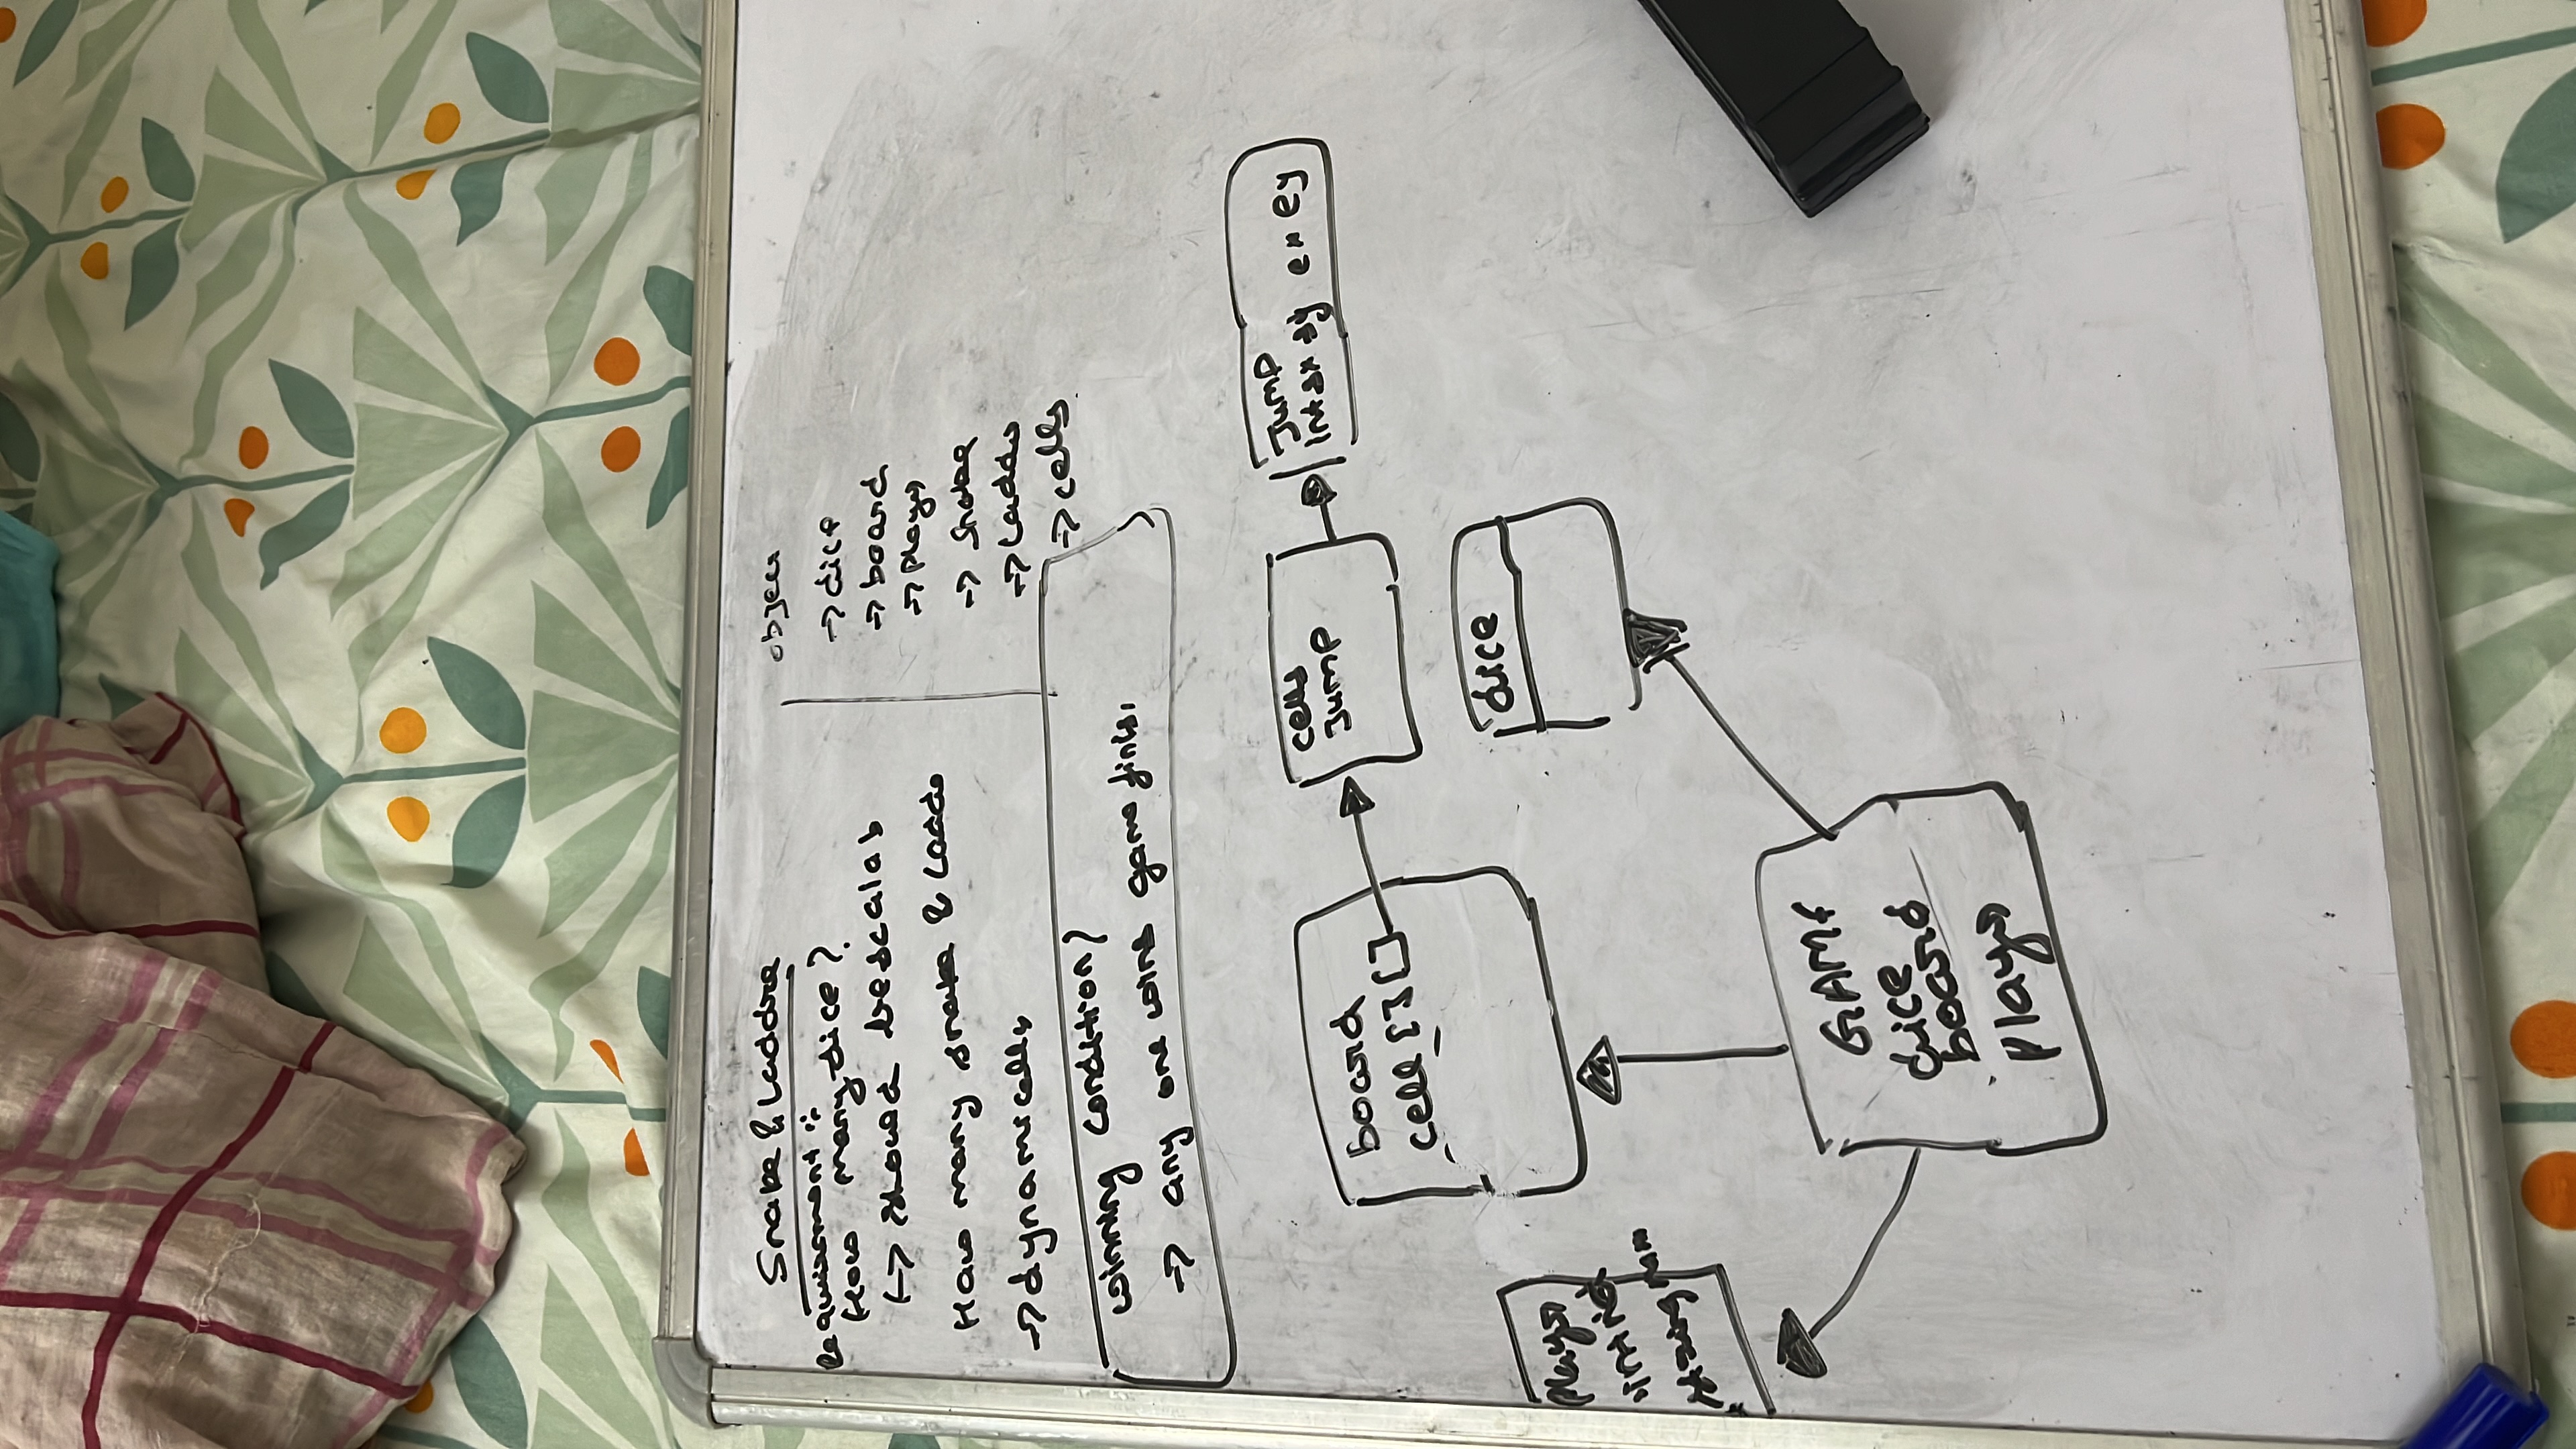 Snake & Laddre
Requirement :
How many dice?
↳ should be scalab
How many snake & Ladde
→ dynamically
winning condition?
→ any one wins game finis.
object
→ dice
→ board
→ Player
→ Snake
→ Ladde
→ cells
board
cell [] []
cells
Jump
Jump
int sx sy ex ey
dice
Player
int id
string nam
GAME
dice
board
player